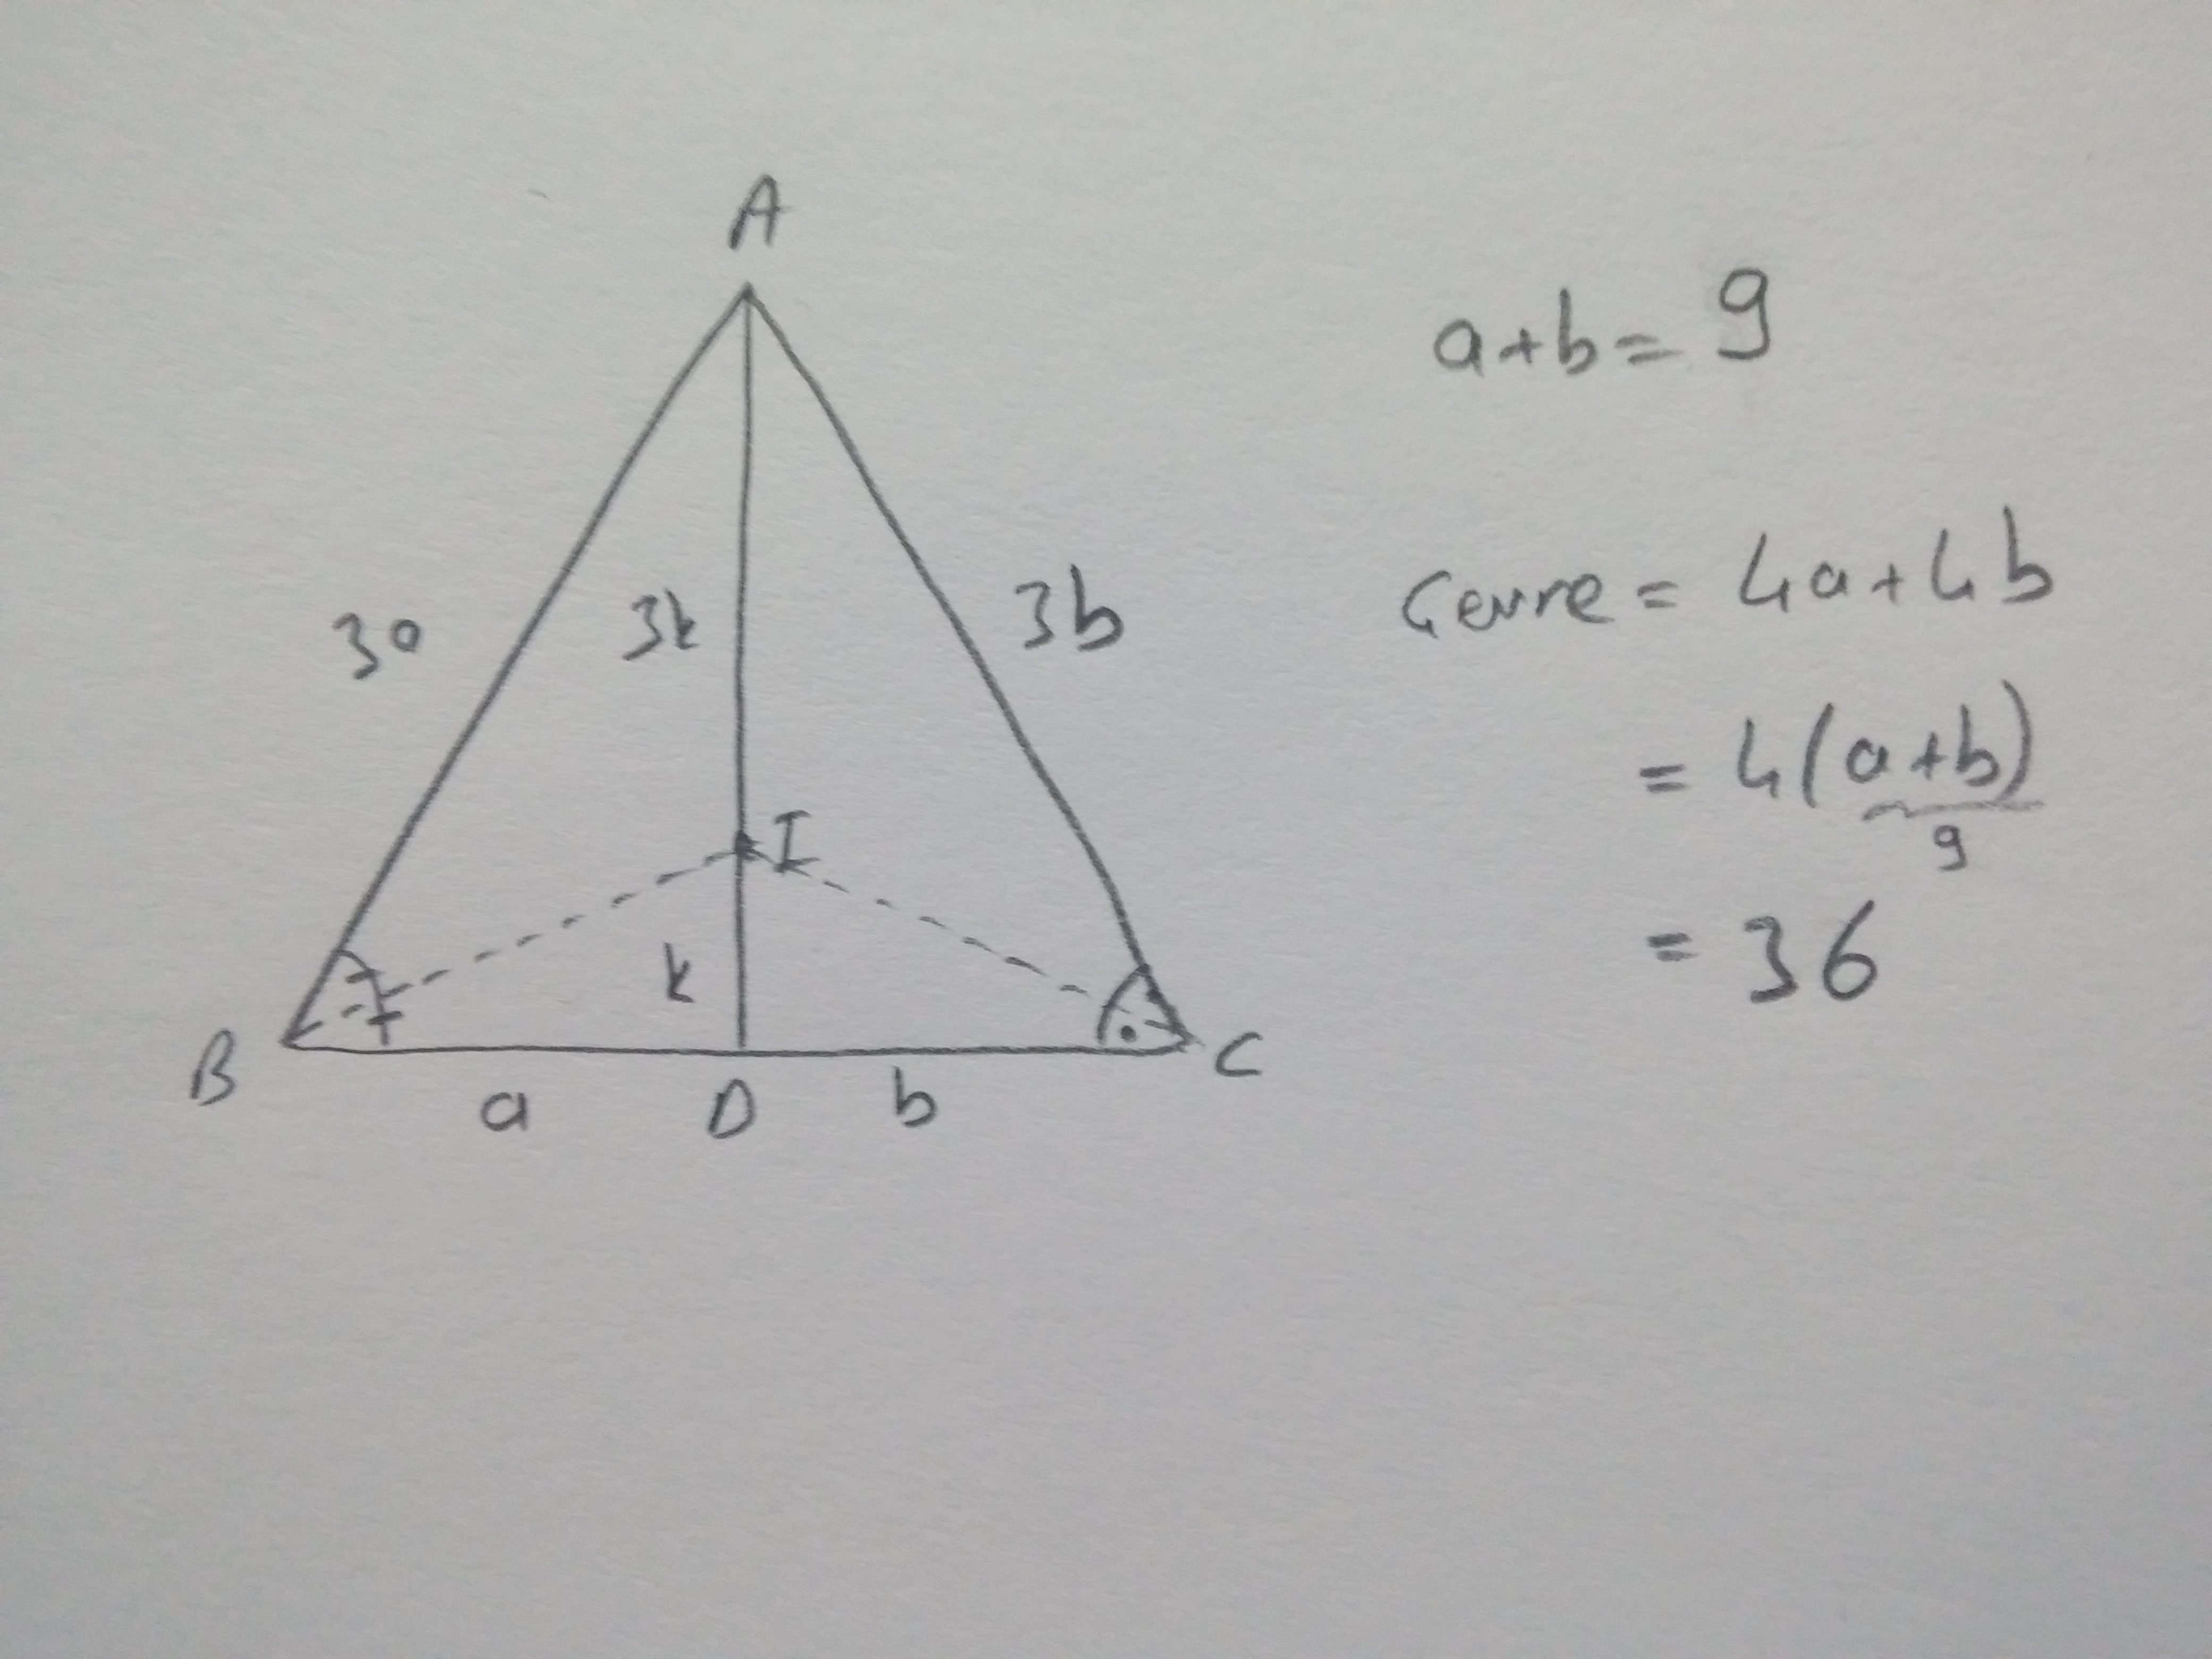 A
a+b= 9
Çevre = 4a+4b
3a 3k 3b
= 4(a+b)
I
9
= 36
k
B C
a D b